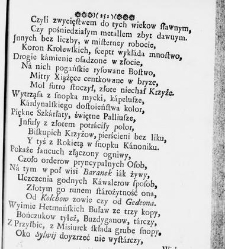 )( 15 )(
Czyli zwycięstwem do tych wiekow sławnym,
Czy pośniedziałym metallem zbyt dawnym.
Jnnych bez liczby, w misterney robocie,
Koron Krolewskich, sceptr wykłada mnostwo,
Drogie kamienie osadzone w złocie,
Na nich pogańskie rysowane Bostwo,
Mitry Xiążęce centkowane w bryze,
Mol futro stoczył, złote niechał Krzyże.
Wytrząsa z snopka mycki, kapelusze,
Kardynalskiego dostoieństwa kolor,
Piękne Szkarłaty, świętne Palliusze,
Jnfuły z złotem potraciły polor,
Biskupich Krzyżow, pierścieni bez liku,
Y tyś z Rokietą w snopku Kánoniku.
Pokaże łańcuch złączony ogniwy,
Czoło orderow pryncypalnych Osob,
Na tym w poł wisi Baranek iák żywy,
Uczczenia godnych Káwalerow sposob,
Złotym go runem stárożytność ona,
Od Kolchow zowie czy od Gedeona.
Wyimie Hetmańskich Buław ze trzy kopy,
Bończukow tyleż, Buzdyganow, tárczy,
Z Przyłbic, z Misiurek składa grube snopy,
Oko żyłwey doyrzeć nie wystárczy,